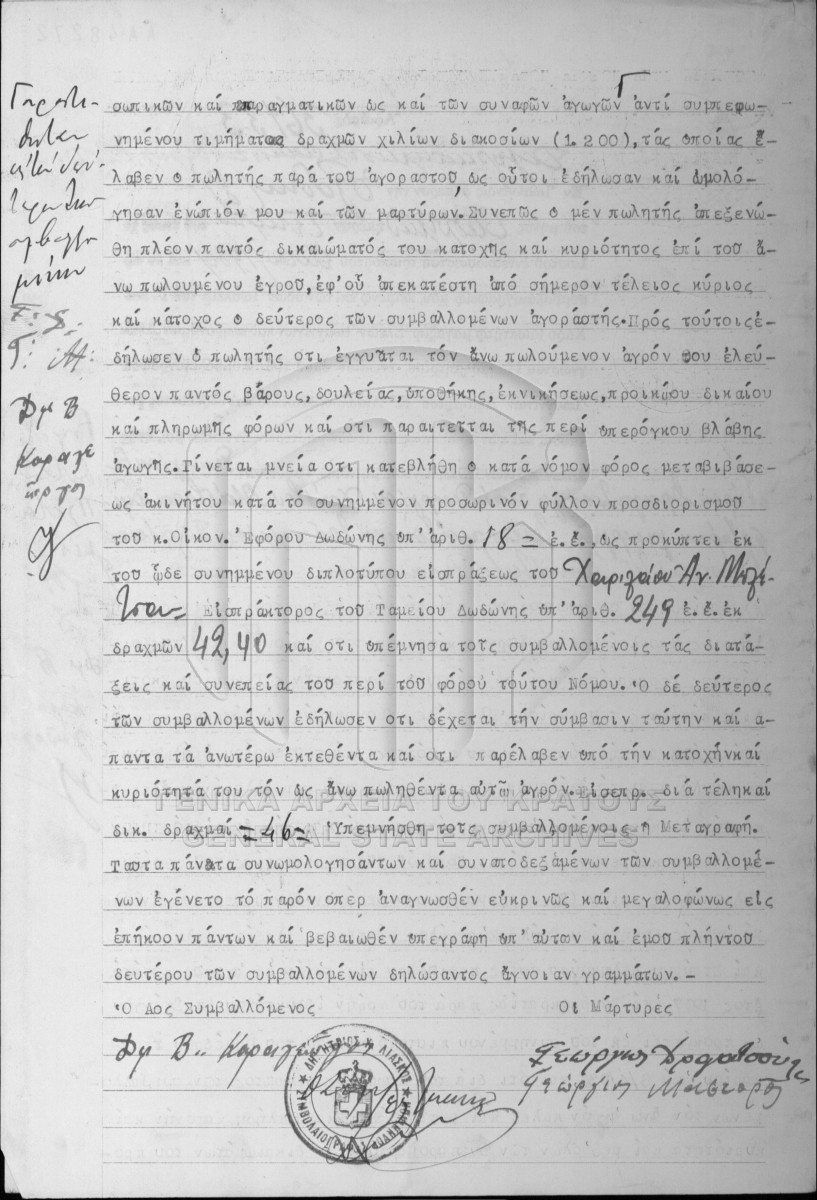 σωπικῶν καί πραγματικῶν ὡς καί τῶν συναφῶν ἀγωγῶν Γ ἀντί συμπεφω-
νημένου τιμήματος δραχμῶν χιλίων διακοσίων (1.200), τάς ὁποίας ἔ-
λαβεν ὁ πωλητής παρά τοῦ ἀγοραστοῦ, ὡς οὗτοι ἐδήλωσαν καί ὡμολό-
γησαν ἐνώπιόν μου καί τῶν μαρτύρων. Συνεπῶς ὁ μέν πωλητής ἀπεξενώ-
θη πλέον παντός δικαιώματός του κατοχῆς καί κυριότητος ἐπί τοῦ ἄ-
νω πωλουμένου ἀγροῦ, ἐφ'οὗ ἀπεκατέστη ἀπό σήμερον τέλειος κύριος
καί κάτοχος ὁ δεύτερος τῶν συμβαλλομένων ἀγοράστής. Πρός τούτοις ἐ-
δήλωσεν ὁ πωλητής ὅτι ἐγγυᾶται τόν ἄνω πωλούμενον ἀγρόν του ἐλεύ-
θερον παντός βάρους, δουλείας, ὑποθήκης, ἐκνικήσεως, προικώου δικαίου
καί πληρωμῆς φόρων καί ὅτι παραιτεῖται τῆς περί ὑπερόγκου βλάβης
ἀγωγῆς. Γίνεται μνεία ὅτι κατεβλήθη ὁ κατά νόμον φόρος μεταβιβάσε-
ως ἀκινήτου κατά τό συνημμένον προσωρινόν φύλλον προσδιορισμοῦ
τοῦ κ. Οἰκον. Ἐφόρου Δωδώνης ὑπ'ἀριθ. 18 = ἐ.ἔ., ὡς προκύπτει ἐκ
τοῦ ὧδε συνημμένου διπλοτύπου εἰσπράξεως τοῦ
Εἰσπράκτορος τοῦ Ταμείου Δωδώνης ὑπ'ἀριθ. 249 ἐ.ἔ. ἐκ
δραχμῶν 42,40 καί ὅτι ὑπέμνησα τοῖς συμβαλλομένοις τάς διατά-
ξεις καί συνεπείας τοῦ περί τοῦ φόρου τούτου Νόμου. Ὁ δέ δεύτερος
τῶν συμβαλλομένων ἐδήλωσεν ὅτι δέχεται τήν σύμβασιν ταύτην καί ἅ-
παντα τά ἀνωτέρω ἐκτεθέντα καί ὅτι παρέλαβεν ὑπό τήν κατοχήν καί
κυριότητά του τόν ὡς ἄνω πωληθέντα αὐτῶ ἀγρόν. Εἰσεπρ. διά τέλη καί
δικ. δραχμαί =46= Ὑπεμνήσθη τοῖς συμβαλλομένοις ἡ Μεταγραφή.
ΓΕΝΙΚΑ ΑΡΧΕΙΑ ΤΟΥ ΚΡΑΤΟΥΣ
GENERAL STATE ARCHIVES
Ταῦτα πάντα συνωμολογησάντων καί συναποδεξαμένων τῶν συμβαλλομέ-
νων ἐγένετο τό παρόν ὅπερ ἀναγνωσθέν εὐκρινῶς καί μεγαλοφώνως εἰς
ἐπήκοον πάντων καί βεβαιωθέν ὑπεγράφη ὑπ'αὐτῶν καί ἐμοῦ πλήν τοῦ
δευτέρου τῶν συμβαλλομένων δηλώσαντος ἄγνοιαν γραμμάτων.-
Ὁ Αος Συμβαλλόμενος Οἱ Μάρτυρες
Δημ Β. Καραγε
Γεώργιος
Γεώργιος
Δημ Β
Καραγε
ώργος